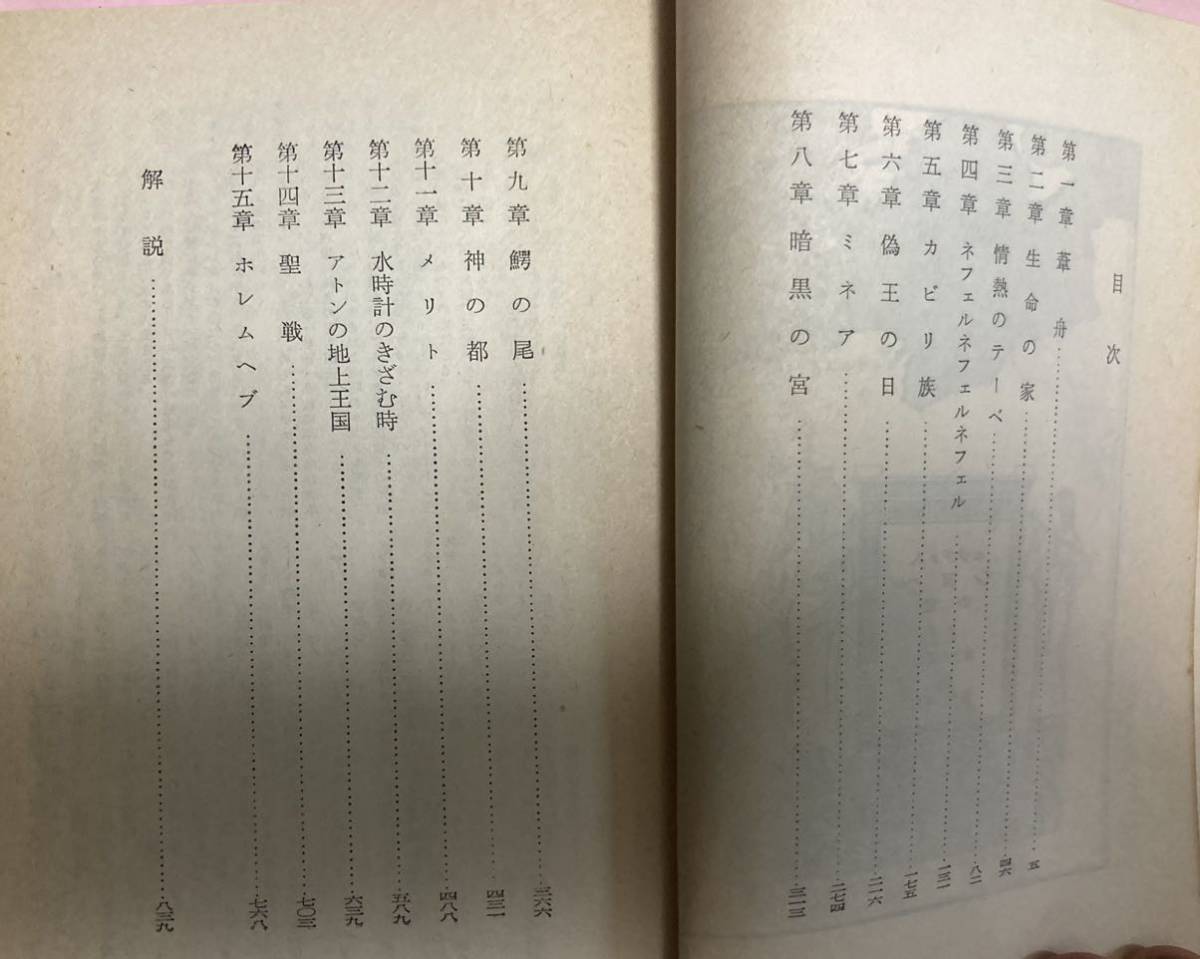 目次
第一章 葦舟……五
第二章 生命の家……四六
第三章 情熱のテーベ……八二
第四章 ネフェルネフェルネフェル……一三一
第五章 カビリ族……一七五
第六章 偽王の日……二一六
第七章 ミネア……二七四
第八章 暗黒の宮……三一三
第九章 鰐の尾……三六六
第十章 神の都……四三一
第十一章 メリト……四八八
第十二章 水時計のきざむ時……五八九
第十三章 アトンの地上王国……六三九
第十四章 聖戦……七〇三
第十五章 ホレムヘブ……七六八
解説……八三九